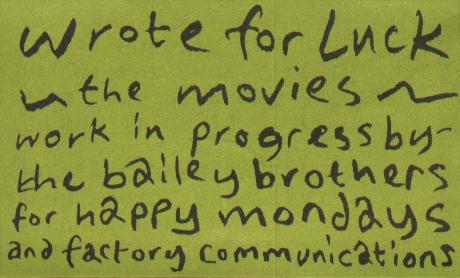 wrote for Luck
~ the movies ~
work in progress by-
the bailey brothers
for happy mondays
and factory communications